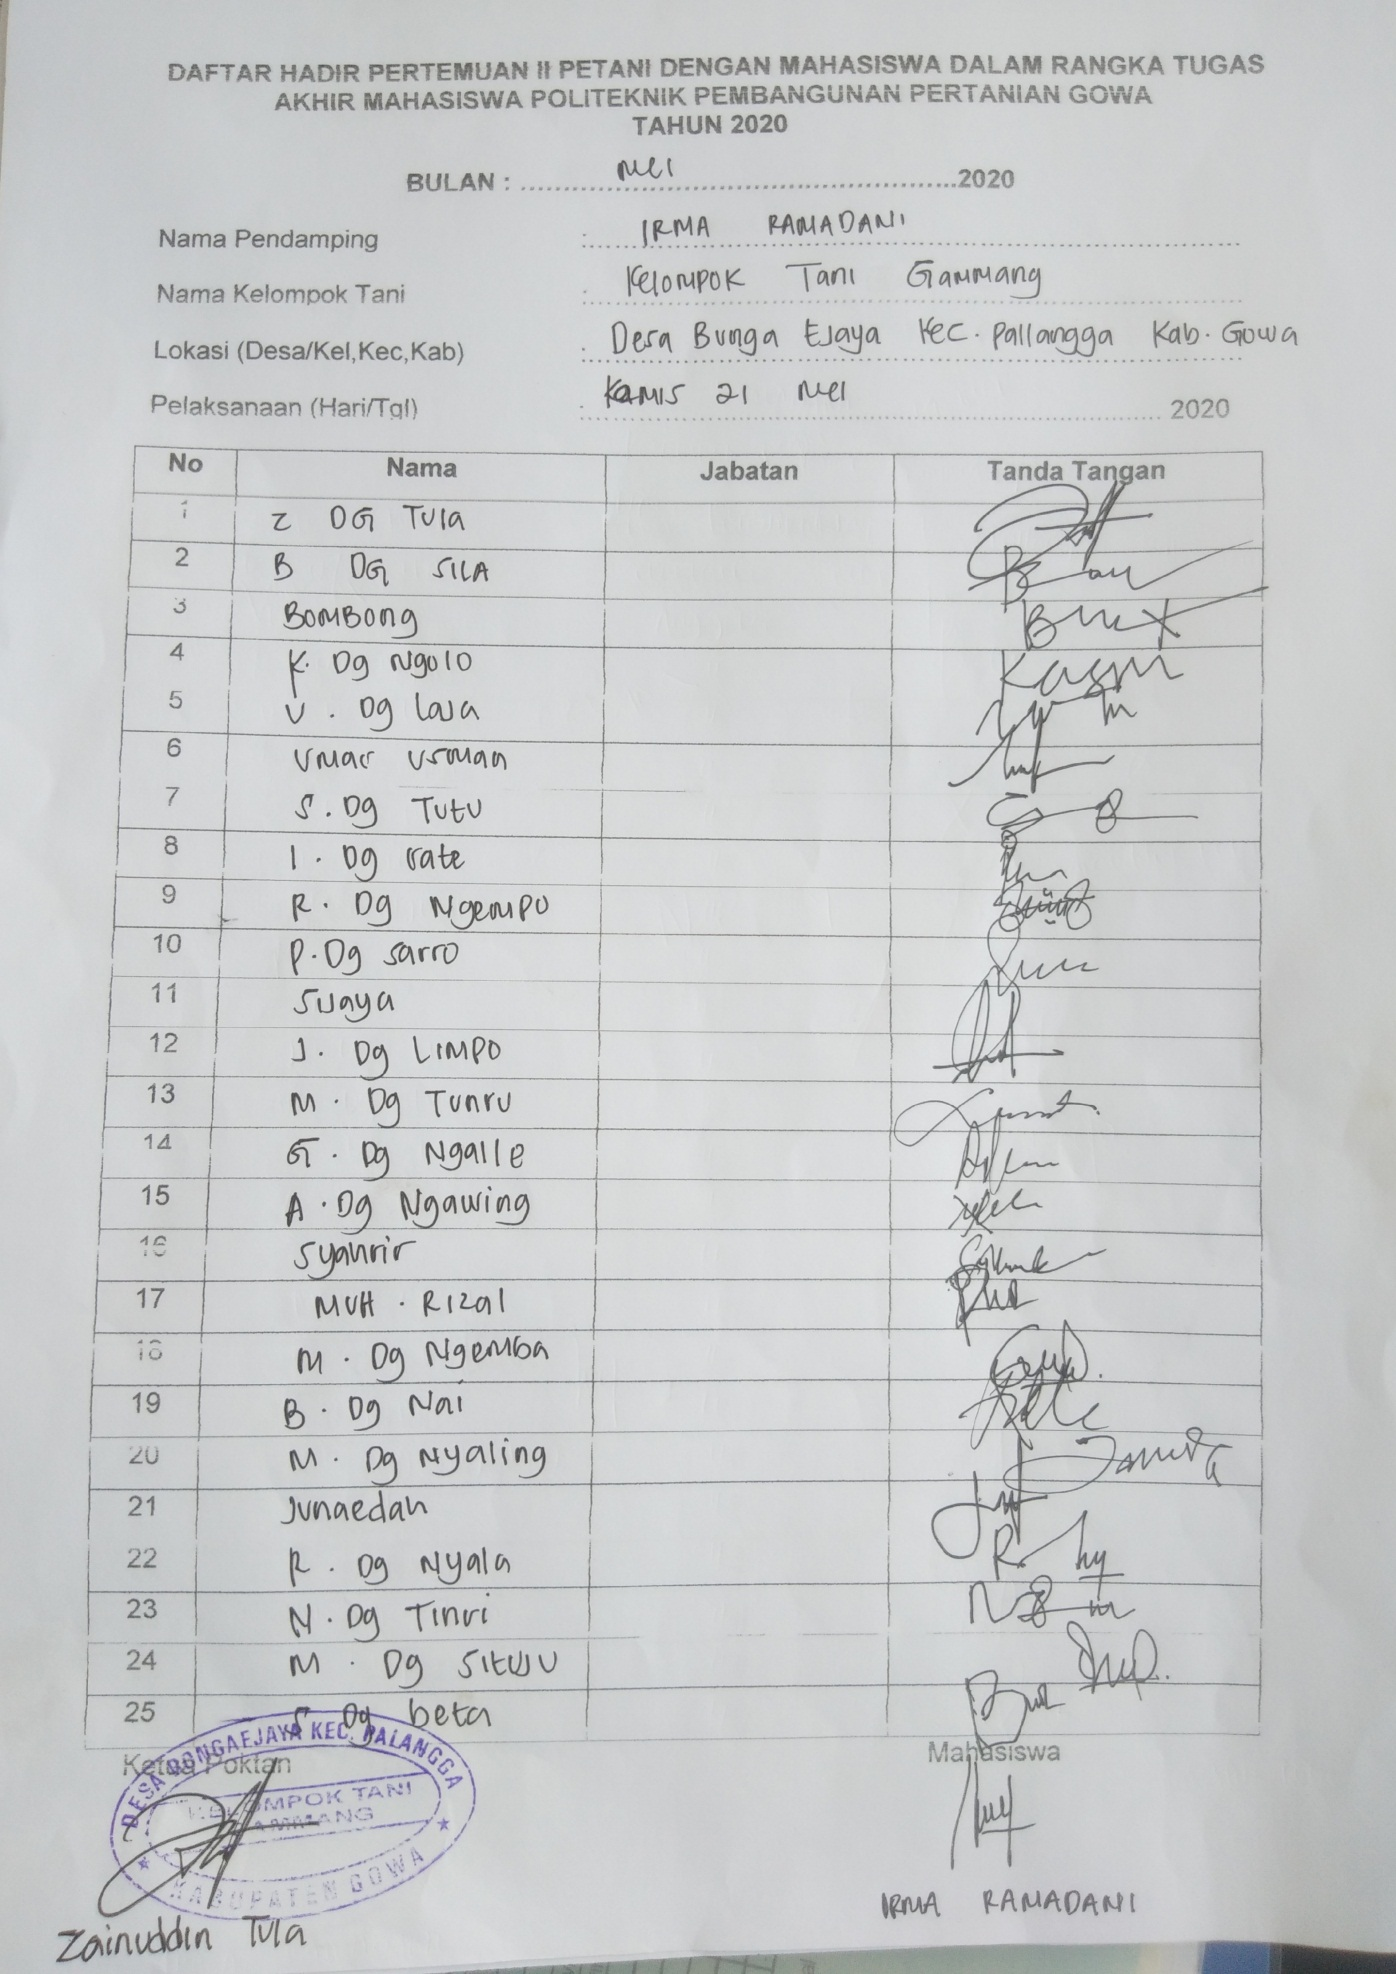 DAFTAR HADIR PERTEMUAN II PETANI DENGAN MAHASISWA DALAM RANGKA TUGAS
AKHIR MAHASISWA POLITEKNIK PEMBANGUNAN PERTANIAN GOWA
TAHUN 2020
BULAN : Mei 2020
Nama Pendamping : IRMA RAMADANI
Nama Kelompok Tani : Kelompok Tani Gammang
Lokasi (Desa/Kel,Kec,Kab) : Desa Bunga Ejaya Kec. Pallangga Kab. Gowa
Pelaksanaan (Hari/Tgl) : Kamis 21 Mei 2020
No Nama Jabatan Tanda Tangan
1 Z DG Tula
2 B DG SILA
3 BOMBONG
4 K. Dg Ngolo
5 U. Dg Laja
6 Umar Usman
7 S. Dg Tutu
8 I. Dg rate
9 R. Dg Ngempo
10 P. Dg sarro
11 Sijaya
12 J. Dg LIMPO
13 M. Dg Tunru
14 G. Dg Ngalle
15 A. Dg Ngawing
16 Syahrir
17 MUH. Rizal
18 M. Dg Ngemba
19 B. Dg Nai
20 M. Dg Nyaling
21 Junaedah
22 R. Dg Nyala
23 N. Dg Tinri
24 M. Dg Situju
25 S. Dg beta
Ketua Poktan Mahasiswa
DESA BONGAEJAYA KEC. PALANGGA
KELOMPOK TANI
GAMMANG
KABUPATEN GOWA
Zainuddin Tula
IRMA RAMADANI